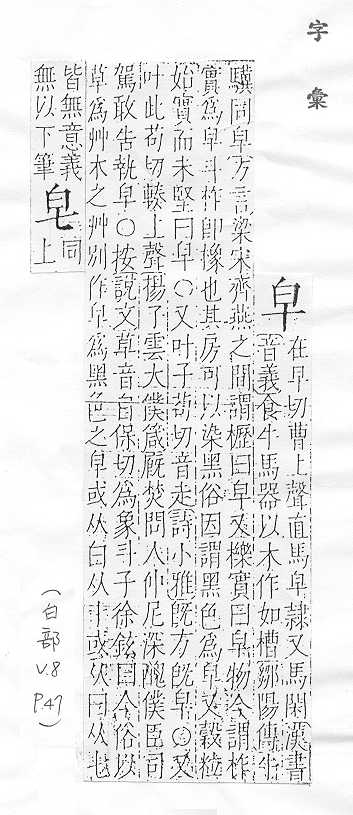 字彙
皁
在早切曹上聲直馬皁隷又馬閑漢書
音義食牛馬器以木作如槽鄒陽傳牛
驥同皁方言梁宋齊燕之間謂櫪曰皁又櫟實曰皁物今謂柞
實爲皁斗柞卽橡也其房可以染黑俗因謂黑色爲皁又穀粒
始實而未堅曰皁○又叶子苟切音走詩小雅旣方旣皁○又
叶此苟切輳上聲揚子雲大僕箴廐焚問人仲尼深醜僕臣司
駕敢告執皁○按說文草音自保切爲象斗子徐鉉曰今俗以
草爲艸木之艸別作皁爲黑色之皁或从白从十或从白从七
皆無意義
無以下筆
皂
同
上
(白部
V.8
P.47)